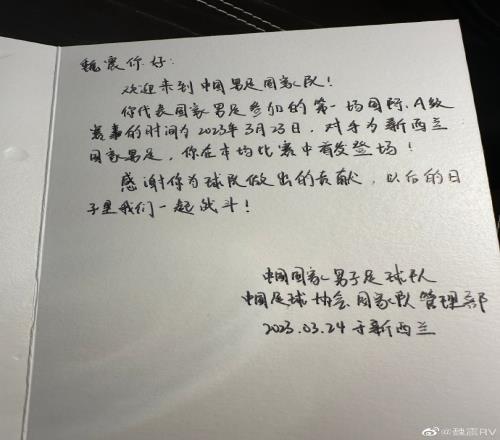 魏震你好:
欢迎来到中国男足国家队!
你代表国家男足参加的第一场国际A级
赛事的时间为2023年3月23日,对手为新西兰
国家男足,你在本场比赛中首发登场!
感谢你为球队做出的贡献,以后的日
子里我们一起战斗!
中国国家男子足球队
中国足球协会国家队管理部
2023.03.24于新西兰
@魏震RV